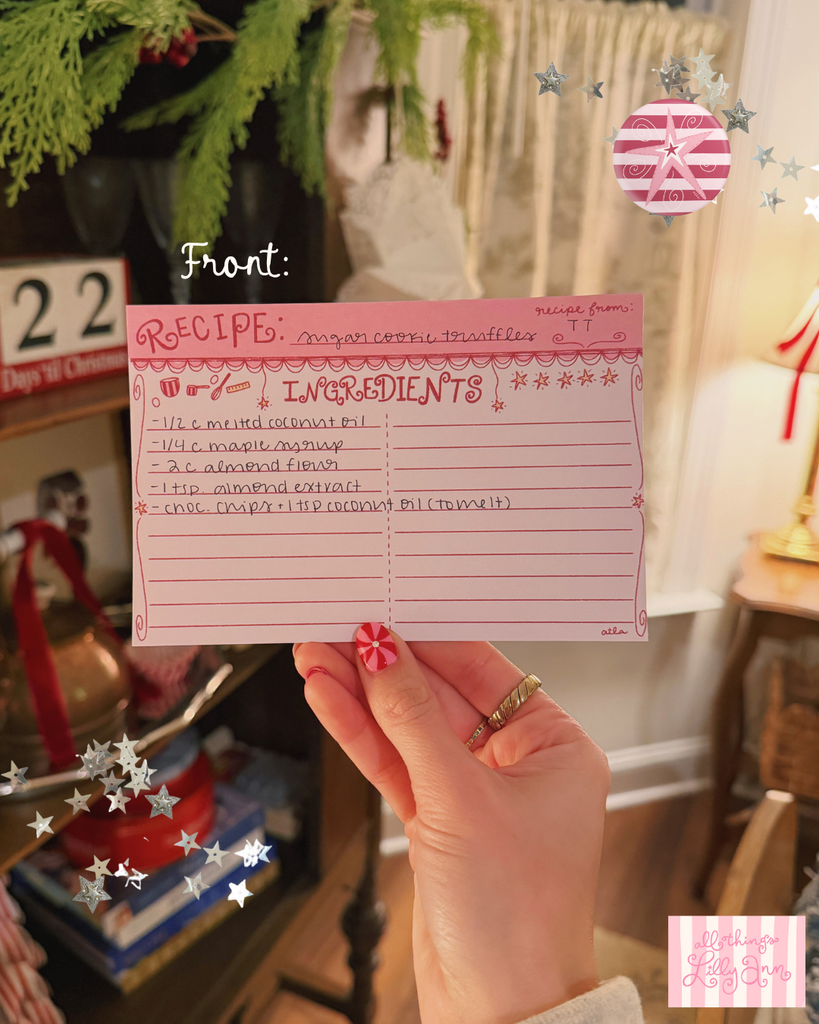 Front:
22
Days 'til Christmas
RECIPE: sugar cookie truffles
recipe from:
TT
INGREDIENTS
- 1/2 c melted coconut oil
- 1/4 c maple syrup
- 2 c almond flour
- 1 tsp. almond extract
- choc. chips + 1 tsp coconut oil (to melt)
atla
all things
Lilly Ann